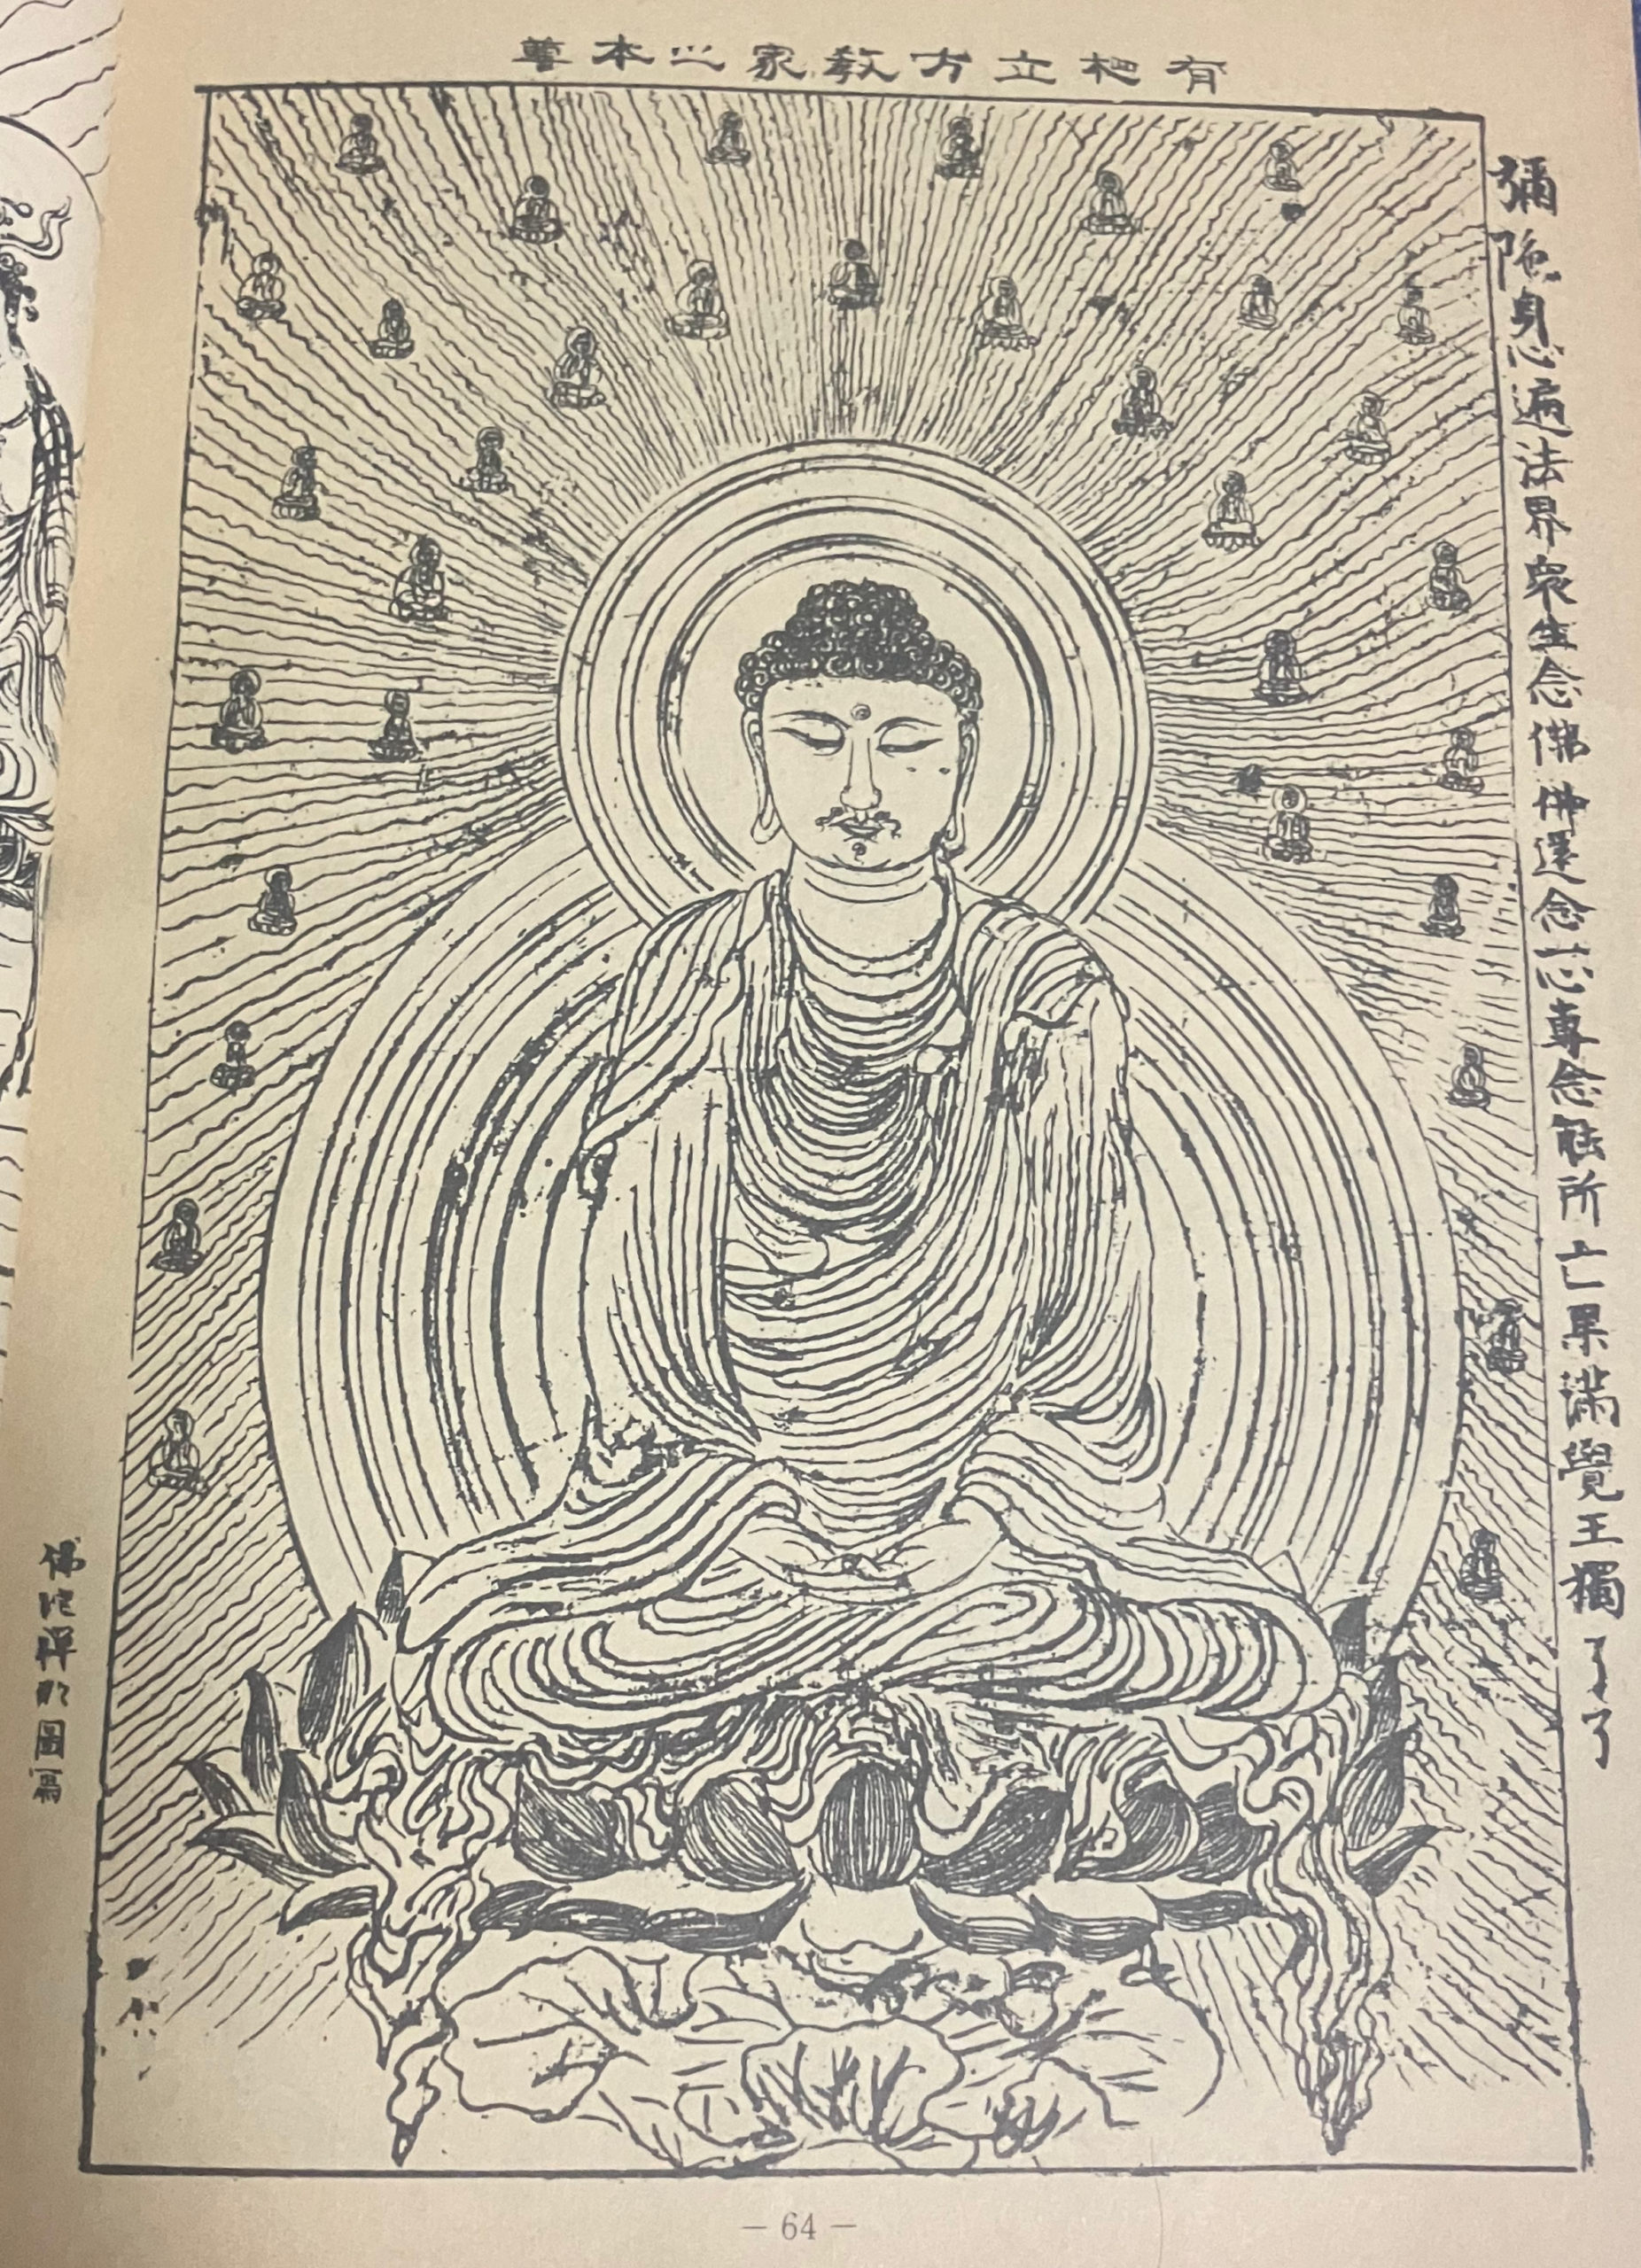 有相立方教家之本尊
彌陀身心遍法界衆生念佛佛還念一心專念能所亡果滿覺王獨了了
佛陀禪那圖寫
— 64 —